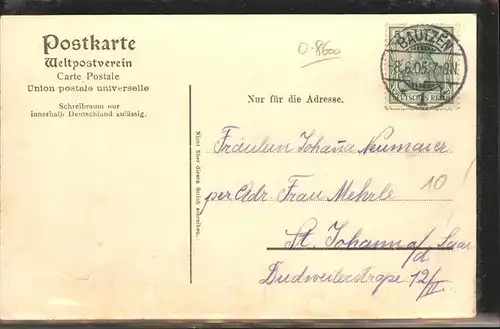 Postkarte
Weltpostverein
Carte Postale
Union postale universelle
Schreibraum nur
innerhalb Deutschland zulässig.
O-8600
BAUTZEN
8.6.05.7-8N.
DEUTSCHES REICH
Nur für die Adresse.
Nicht über diesen Strich schreiben.
Fräulein Johaṅa Neumaier
per Adr. Frau Mehrle
10
St. Johann a/d. Saar
Dudweilerstraße 12/II